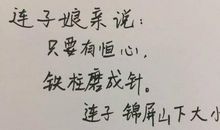 连子娘亲说：
只要有恒心，
铁柱磨成针。
连子 锦屏山下大小